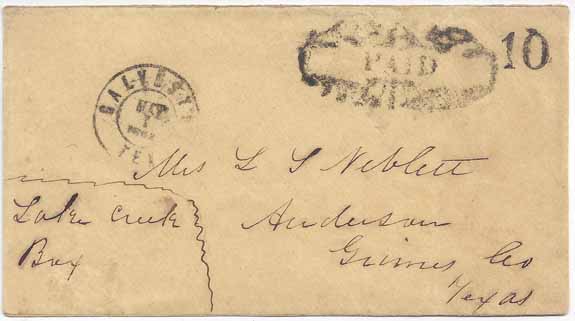 PAID
10
GALVESTON
TEX
Mrs L S Neblett
Lake Creek
Box
Anderson
Grimes Co
Texas